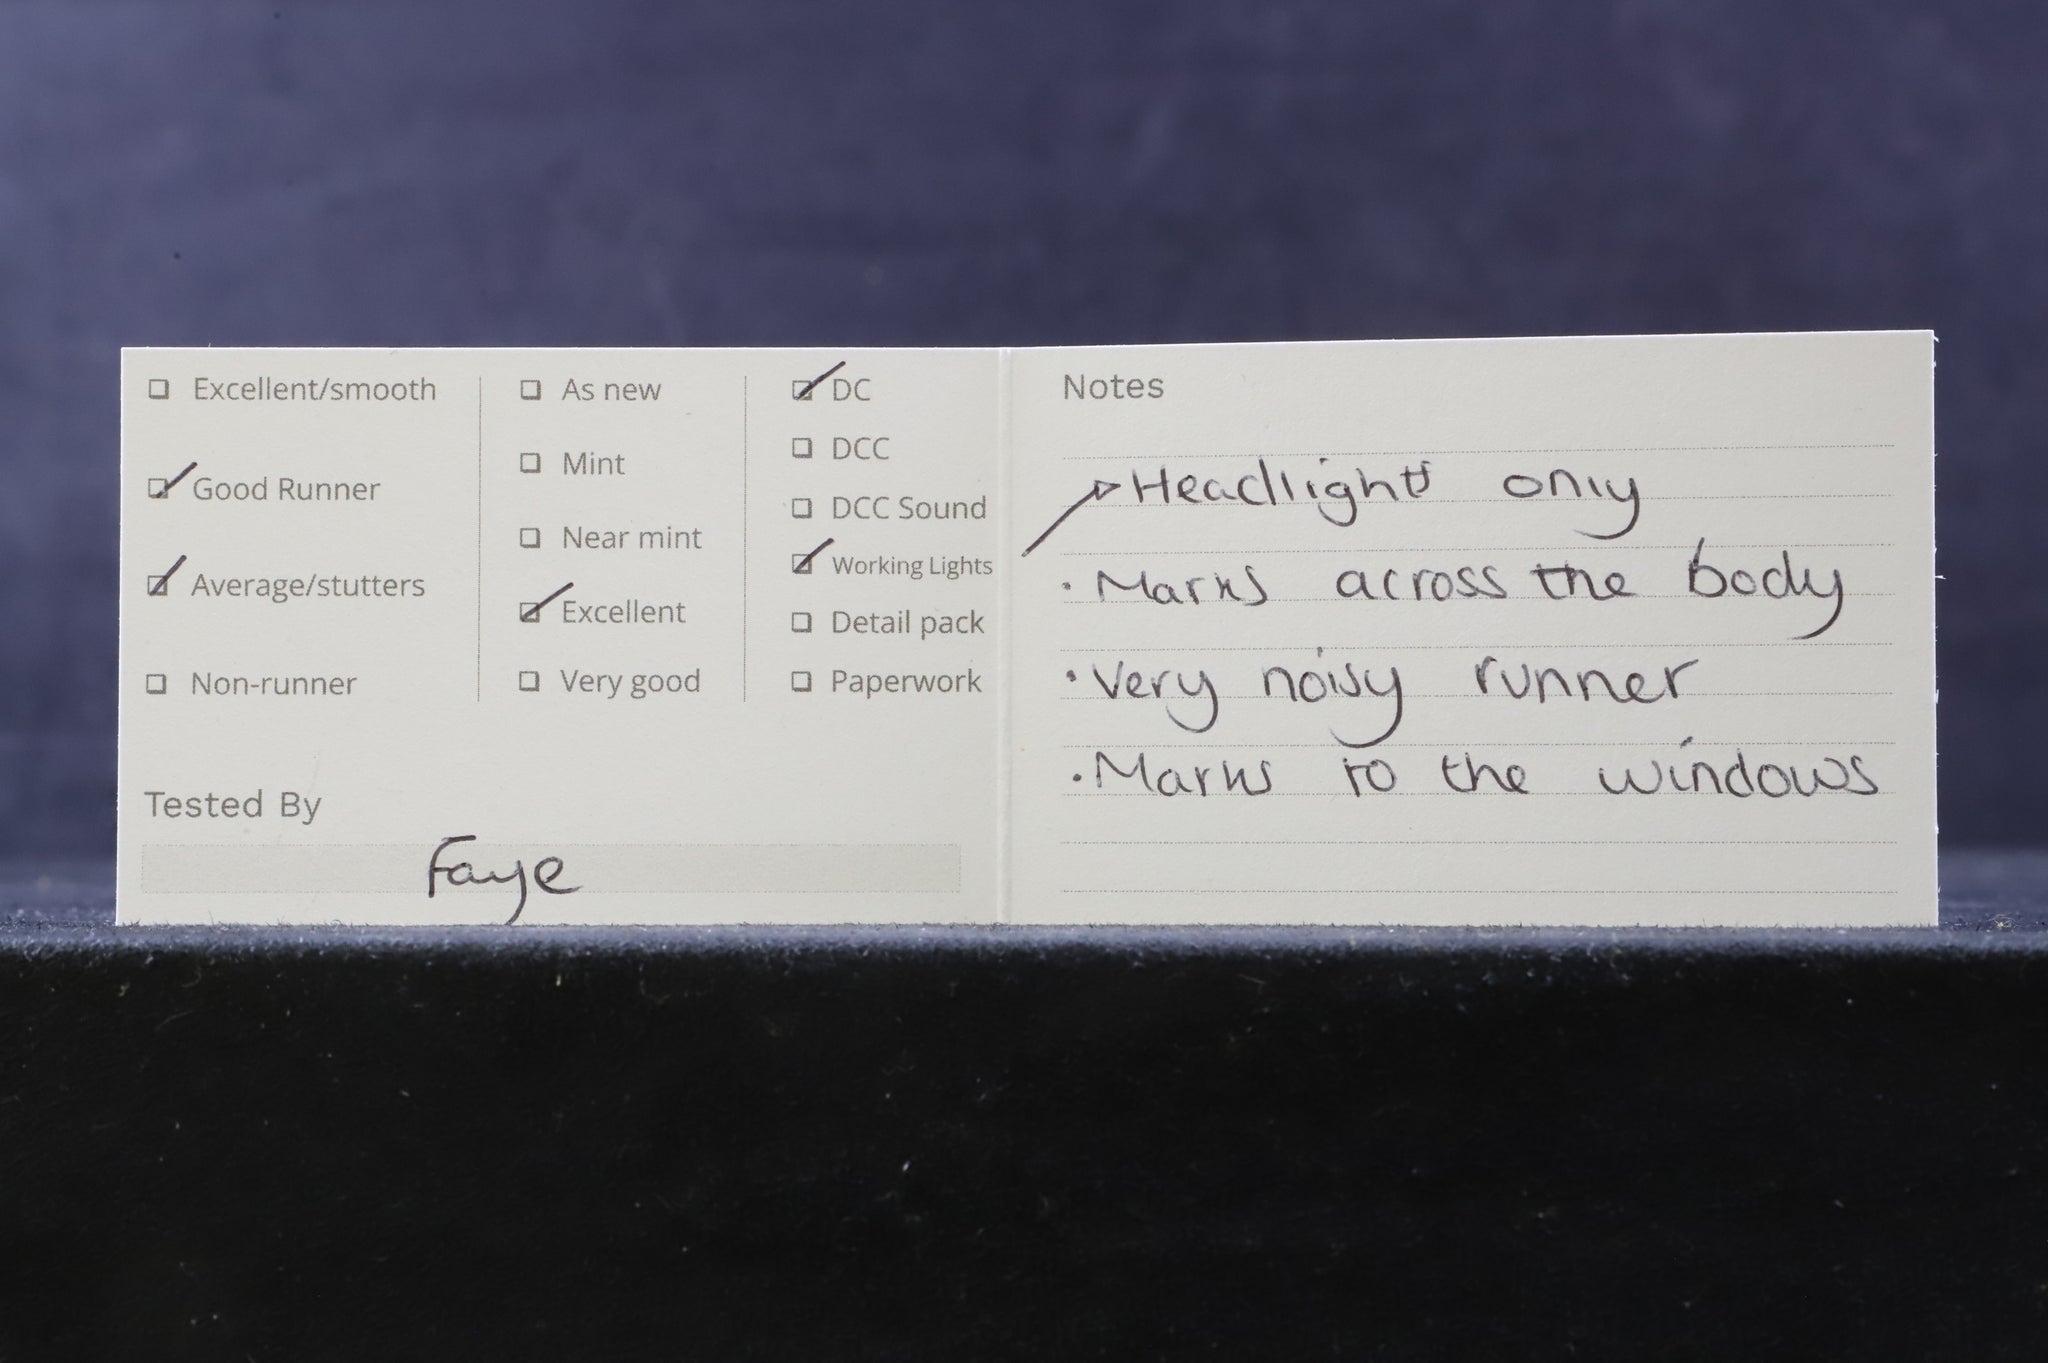 Excellent/smooth
Good Runner
Average/stutters
Non-runner
As new
Mint
Near mint
Excellent
Very good
DC
DCC
DCC Sound
Working Lights
Detail pack
Paperwork
Tested By
Faye
Notes
Headlights only
· Marks across the body
· Very noisy runner
· Marks to the windows